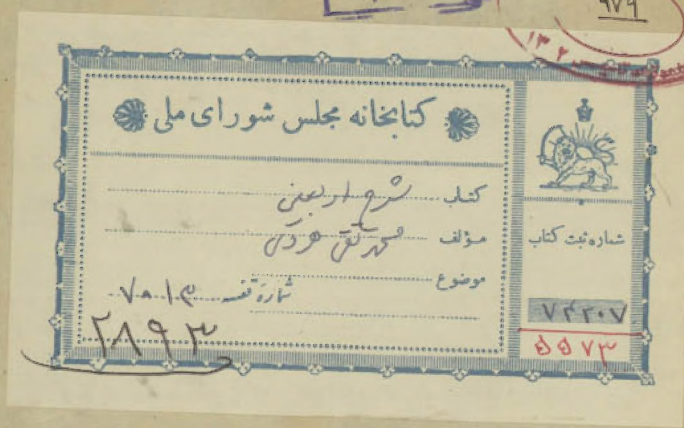 ۹۷۹
۱۳۰۲
کتابخانه مجلس شورای ملی
کتاب شرح اربعین
مؤلف محمد تقی هروی
موضوع
شماره قفسه ۷۰۱۳
۲۸۹۳
شماره ثبت کتاب
۷۲۲۰۷
۵۵۷۳